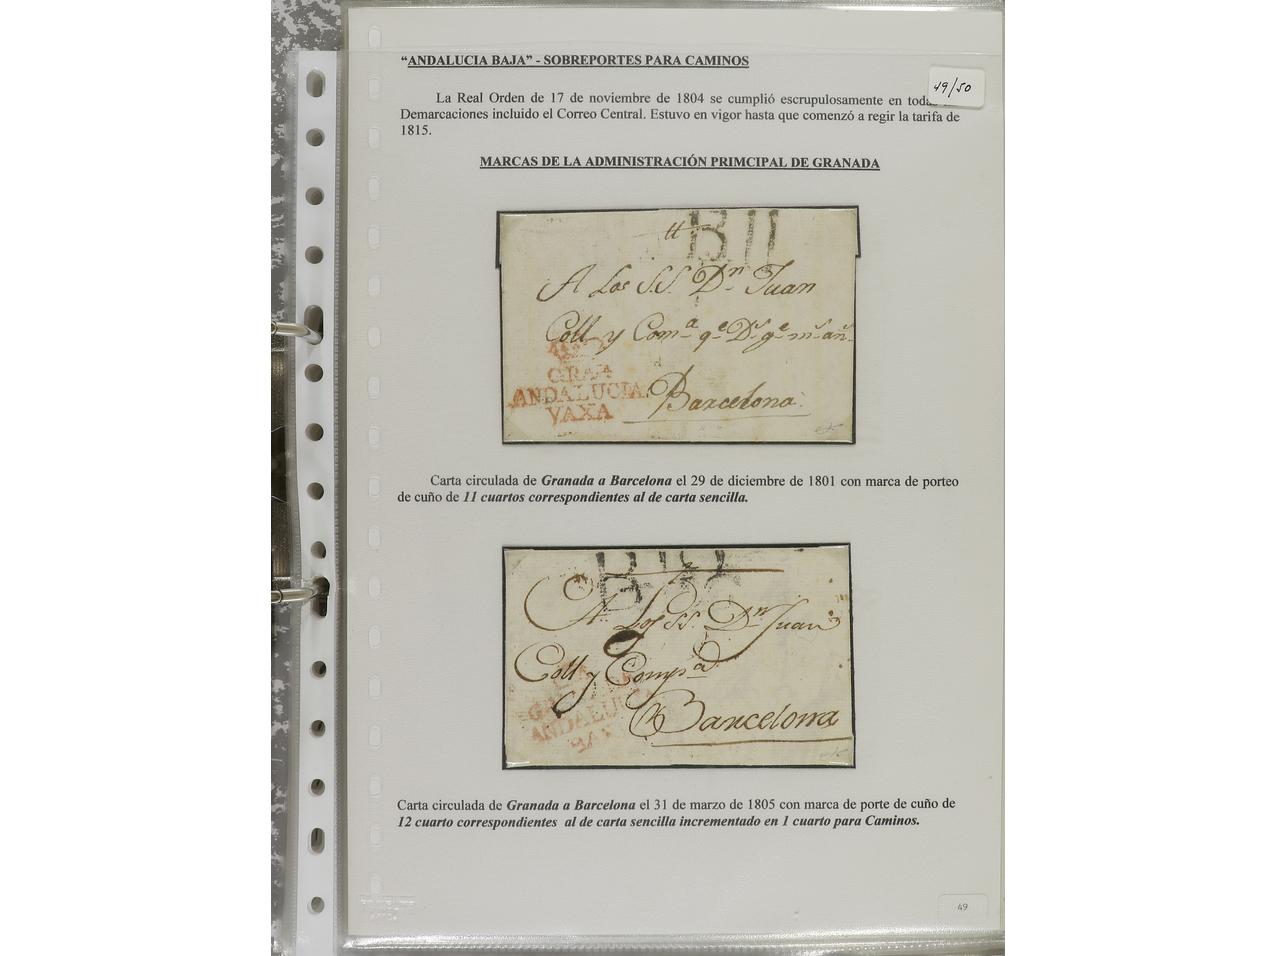 “ANDALUCIA BAJA” - SOBREPORTES PARA CAMINOS
49/50
La Real Orden de 17 de noviembre de 1804 se cumplió escrupulosamente en
Demarcaciones incluido el Correo Central. Estuvo en vigor hasta que comenzó a regir la tarifa de
1815.
MARCAS DE LA ADMINISTRACIÓN PRIMCIPAL DE GRANADA
B11
A Los S.S. Dn Juan
Coll y Coma qe Ds ge ms añs
ANDALUCIA
VAXA
Barcelona
Carta circulada de Granada a Barcelona el 29 de diciembre de 1801 con marca de porteo
de cuño de 11 cuartos correspondientes al de carta sencilla.
A Los SS. Dn Juan
Coll y Compa
Barcelona
Carta circulada de Granada a Barcelona el 31 de marzo de 1805 con marca de porte de cuño de
12 cuarto correspondientes al de carta sencilla incrementado en 1 cuarto para Caminos.
49